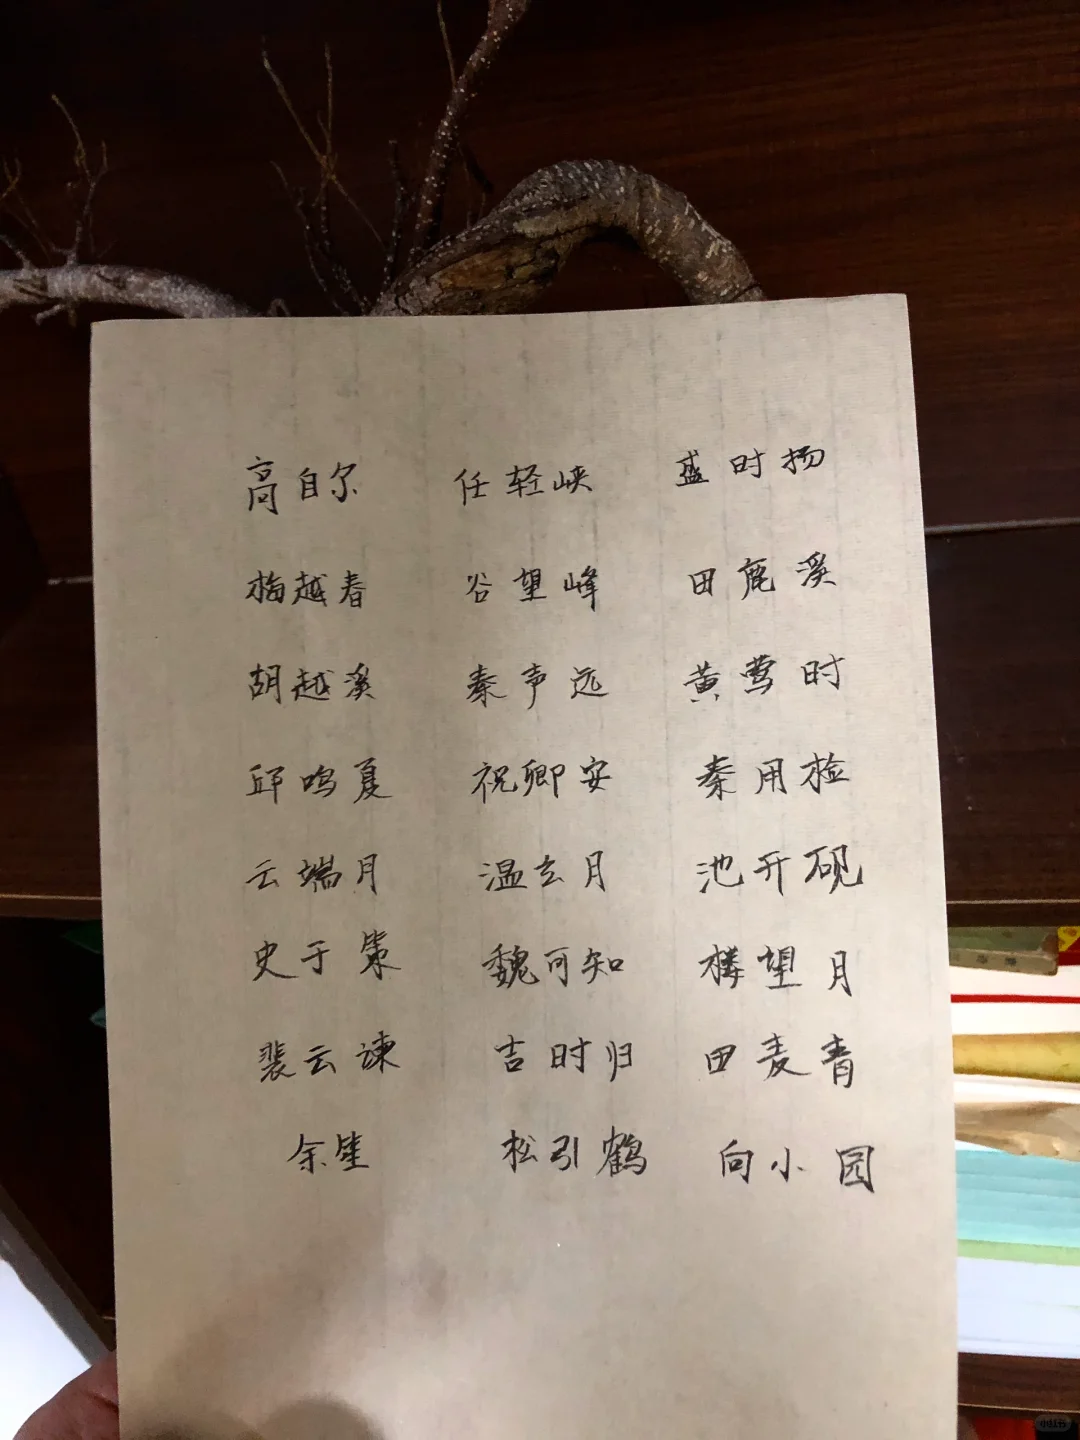 高自尔 任轻峡 盛时扬
梅越春 谷望峰 田鹿溪
胡越溪 秦声远 黄莺时
邱鸣夏 祝卿安 秦用检
云端月 温玄月 池开砚
史于策 魏可知 楼望月
裴云谏 吉时归 田麦青
余笙 松引鹤 向小园
小红书